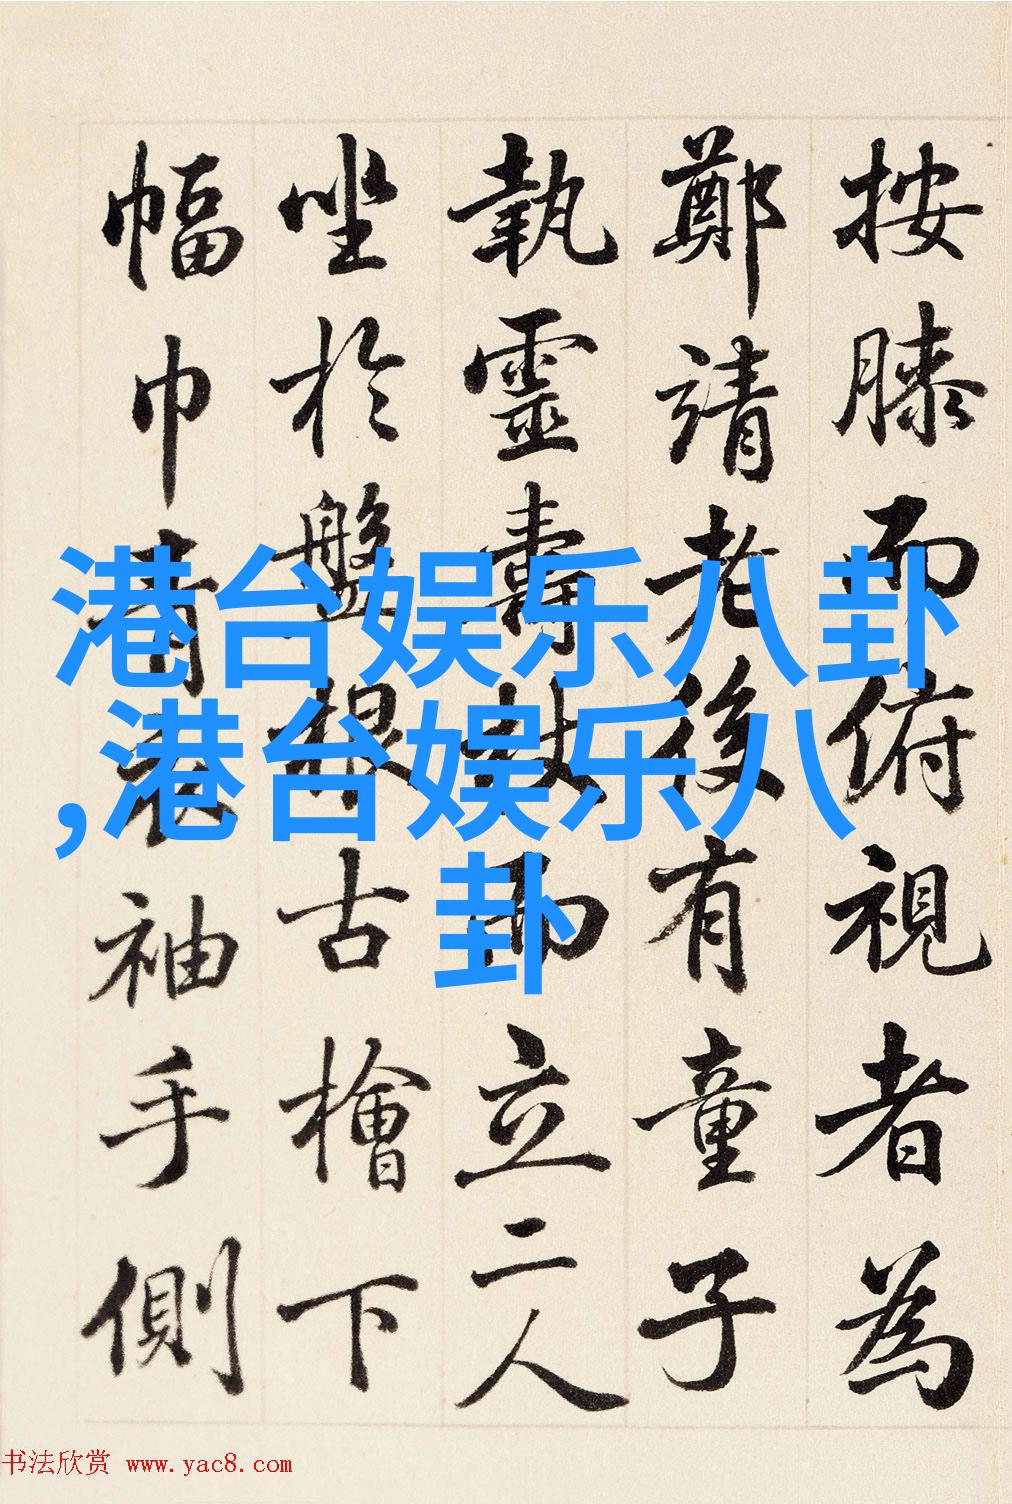 按膝而俯視者為
鄭靖老後有童子
執靈壽杖而立二人
坐於盤根古檜下
幅巾青衣袖手側
港台娱乐八卦
,港台娱乐八
卦
书法欣赏 www.yac8.com